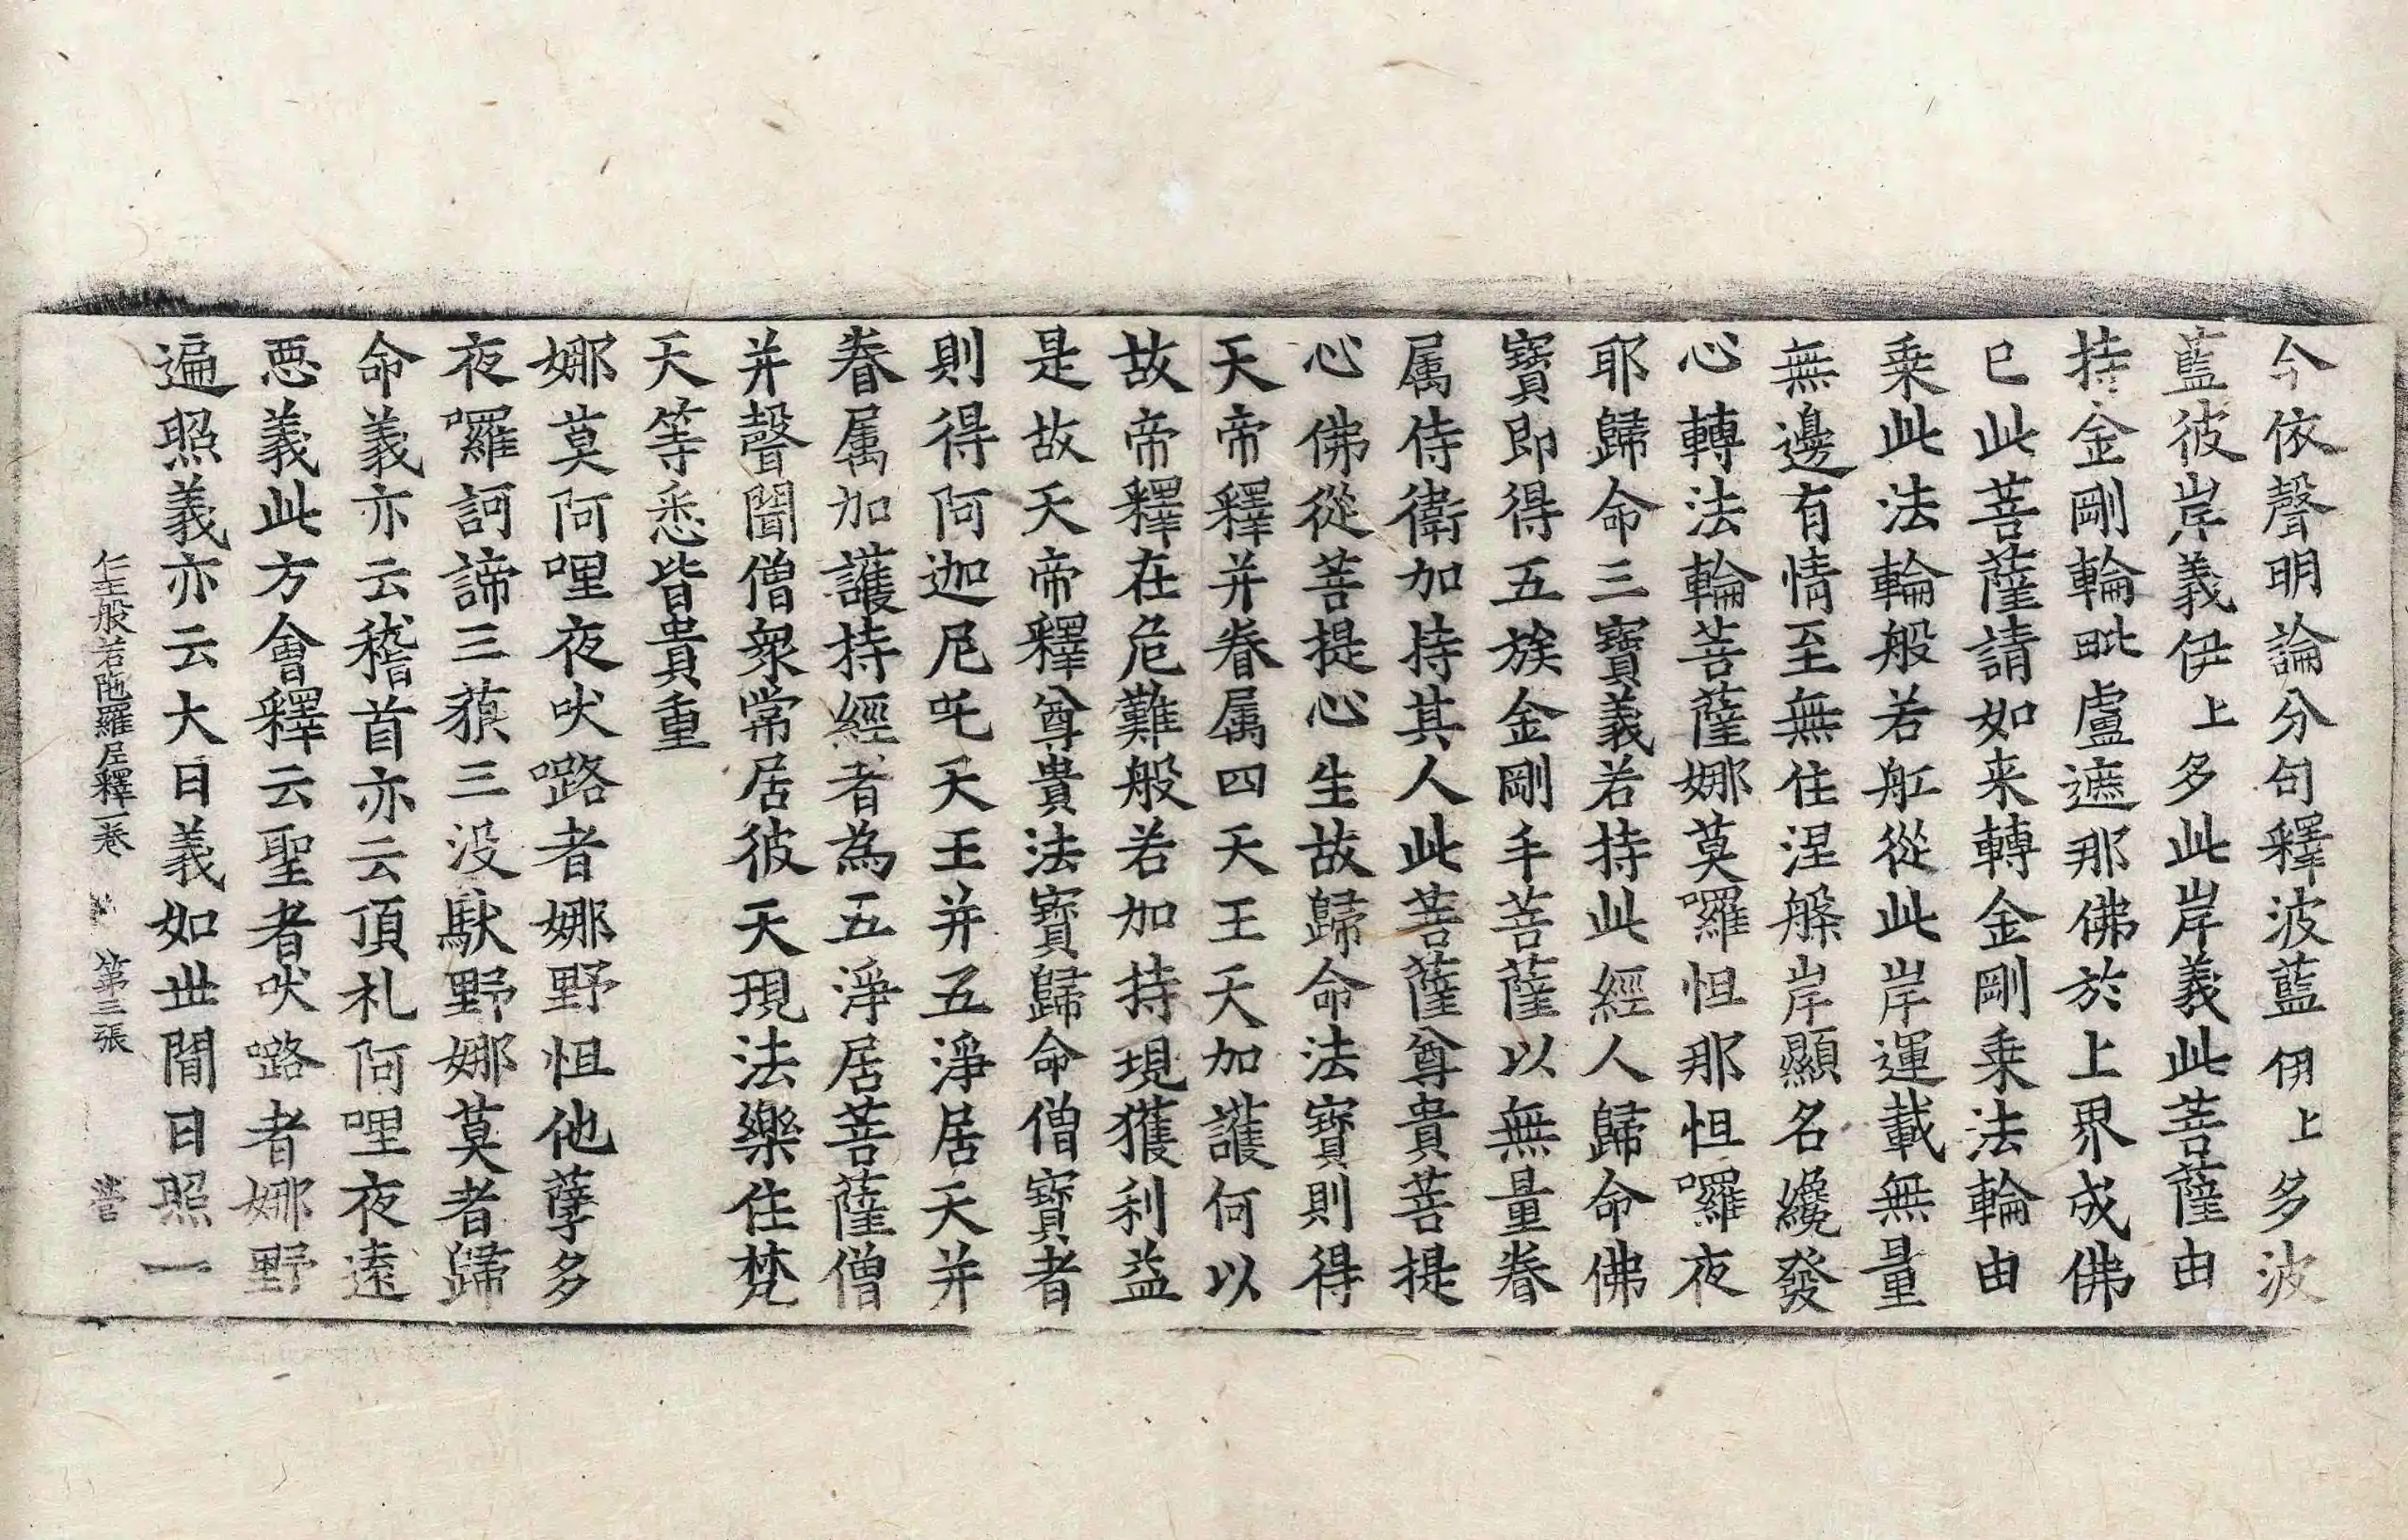 今依聲明論分句釋波藍伊上多波
藍彼岸義伊上多此岸義此菩薩由
持金剛輪毗盧遮那佛於上界成佛
已此菩薩請如来轉金剛乗法輪由
乗此法輪般若舡從此岸運載無量
無邊有情至無住涅槃岸顯名纔發
心轉法輪菩薩娜莫囉怛那怛囉夜
耶歸命三寶義若持此經人歸命佛
寶即得五族金剛手菩薩以無量眷
属侍衛加持其人此菩薩尊貴菩提
心佛從菩提心生故歸命法寶則得
天帝釋并眷属四天王天加護何以
故帝釋在危難般若加持現獲利益
是故天帝釋尊貴法寶歸命僧寶者
則得阿迦尼吒天王并五淨居天并
眷属加護持經者為五淨居菩薩僧
并聲聞僧衆常居彼天現法樂住梵
天等悉皆貴重
娜莫阿哩夜吠嚕者娜野怛他孽多
夜囉訶諦三藐三没馱野娜莫者歸
命義亦云稽首亦云頂礼阿哩夜遠
惡義此方會釋云聖者吠嚕者娜野
遍照義亦云大日義如世閒日照一
仁王般若陁羅尼釋一卷 第三張 營